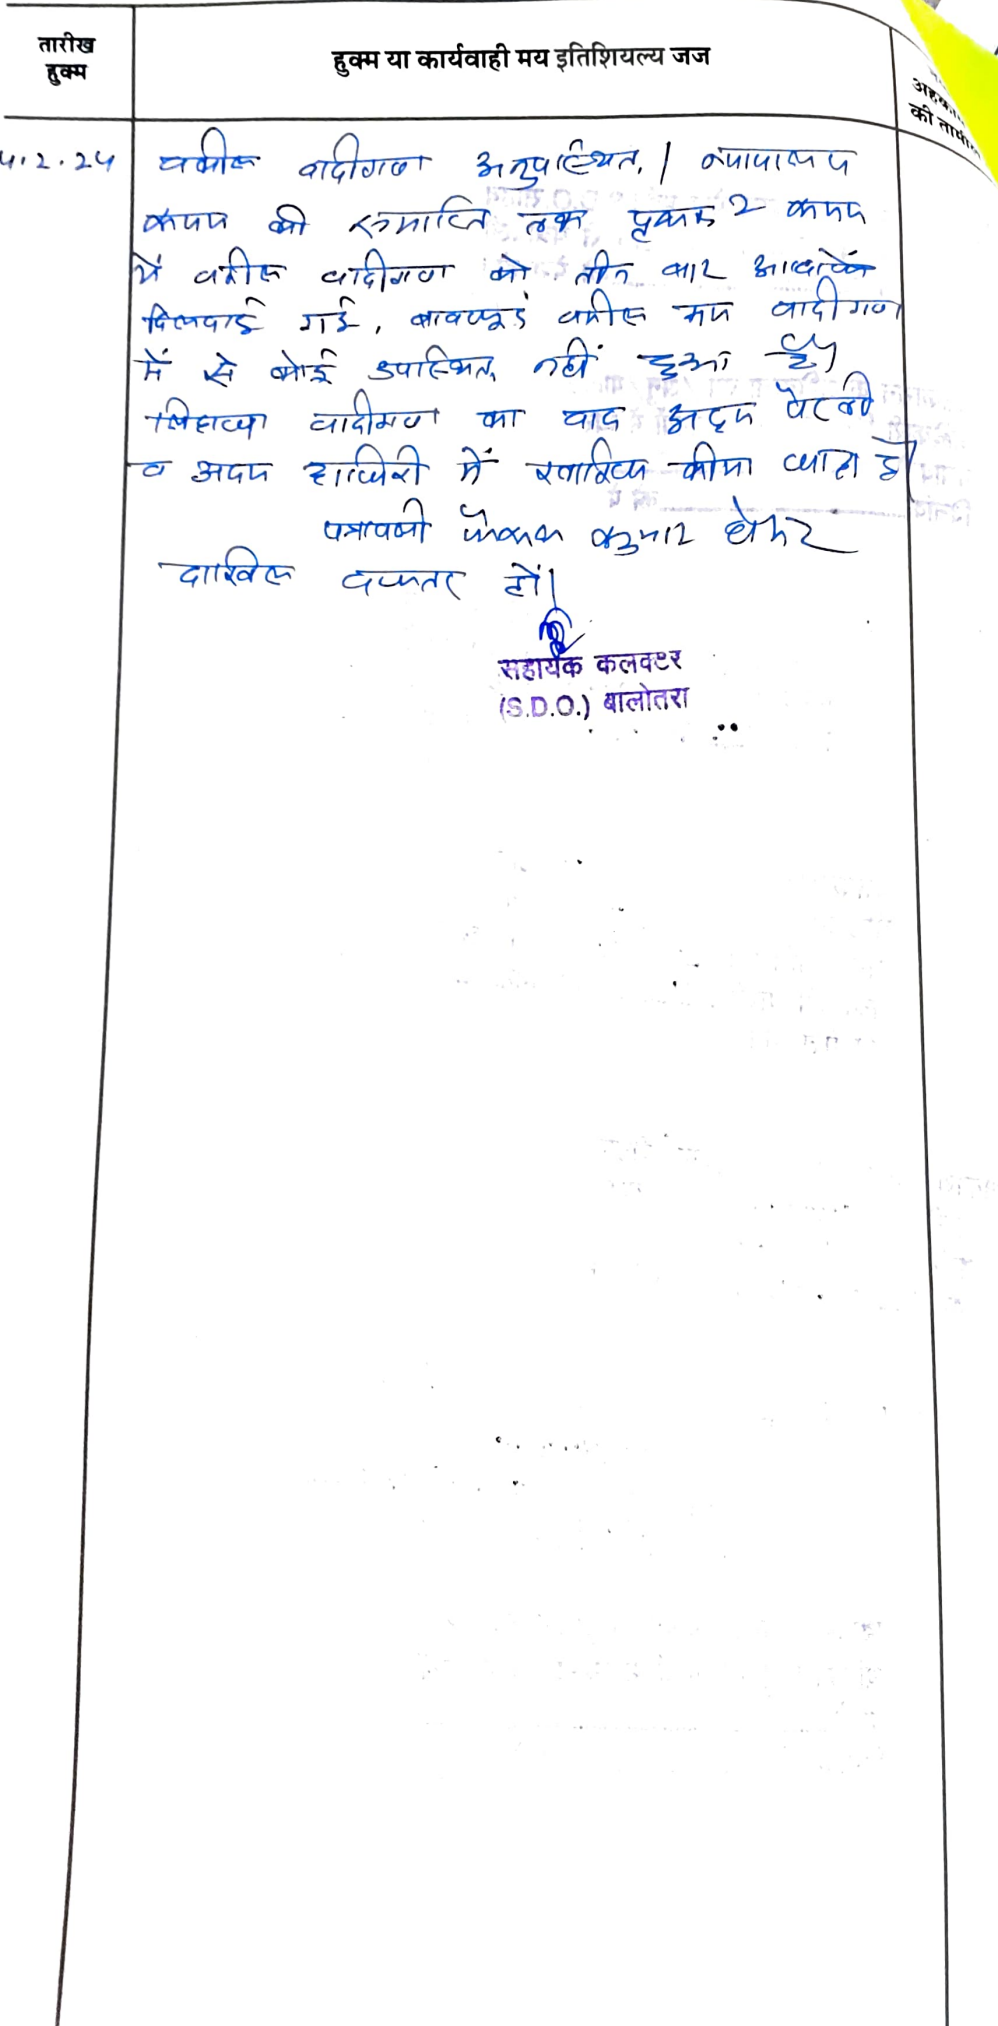 तारीख
हुक्म
हुक्म या कार्यवाही मय इतिशियल्य जज
की तामील
4.2.24 वकील वादीगण अनुपस्थित। न्यायालय
समय की समाप्ति तक पृथक 2 समय
में वकील वादीगण को तीन बार आवाजें
दिलवाई गई, बावजूद वकील मय वादीगण
में से कोई उपस्थित नहीं हुआ है।
लिहाजा वादीगण का वाद अदम पैरवी
व अदम हाजिरी में खारिज कीया जाता है।
पत्रावली फैसल शुमार होकर
दाखिल दफ्तर हों।
सहायक कलक्टर
(S.D.O.) बालोतरा